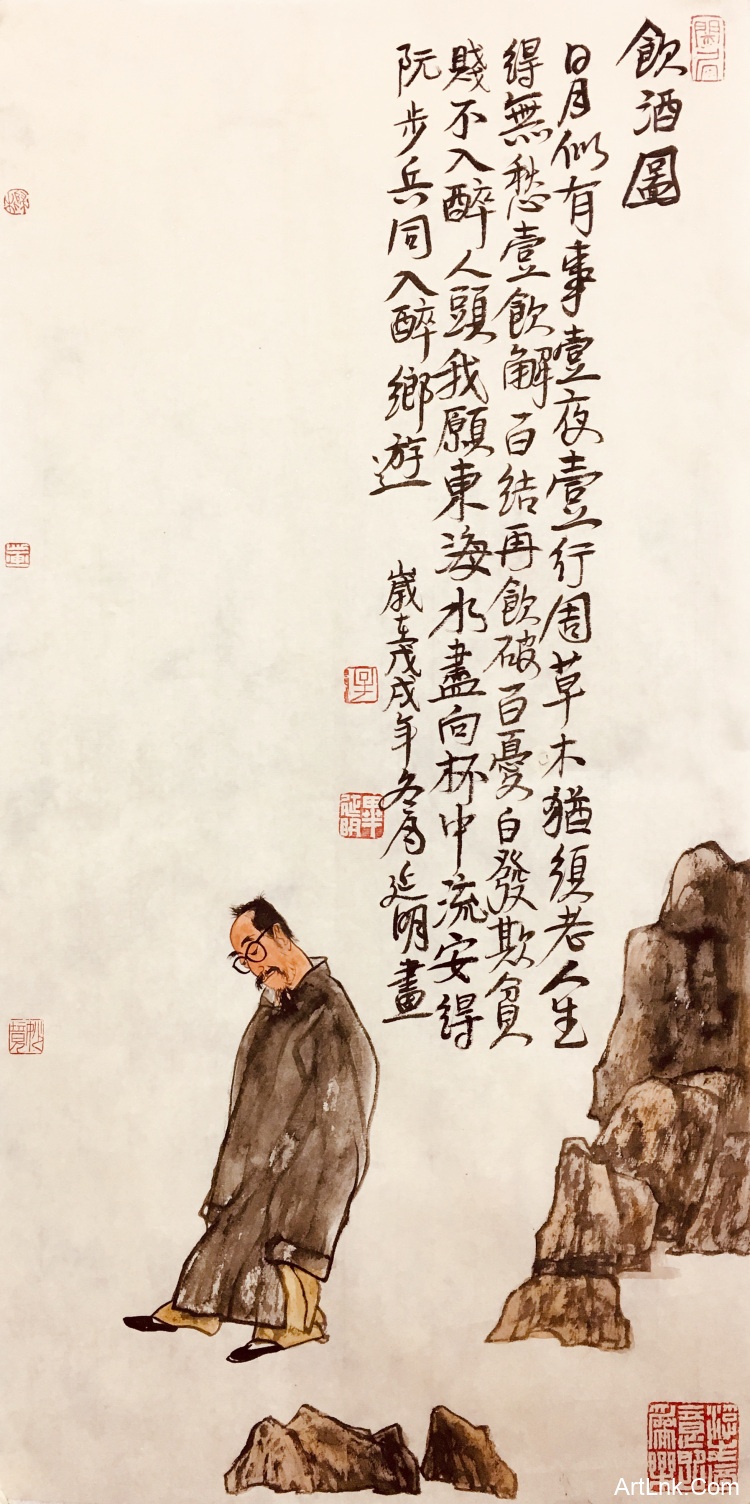 飲酒圖
日月似有事壹夜壹行周草木猶須老人生
得無愁壹飲解百結再飲破百憂白發欺貧
賤不入醉人頭我願東海水盡向杯中流安得
阮步兵同入醉鄉遊
歲在戊戌年冬月延明畫
畢延明
ArtLnk.Com